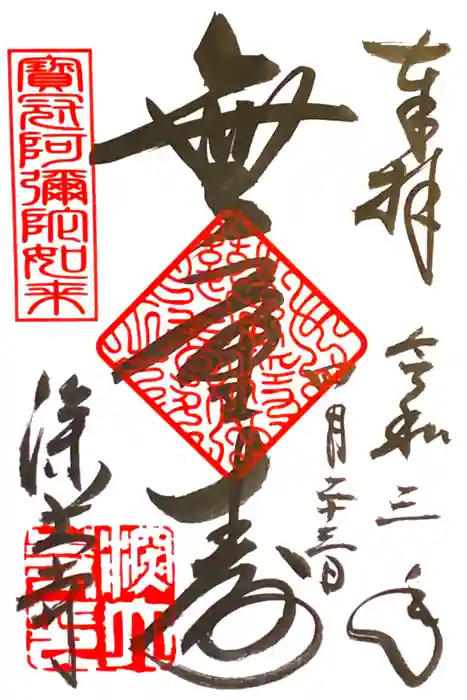 奉拝
令和三年
四月二十三日
無量壽
寶冠阿彌陀如来
深大寺